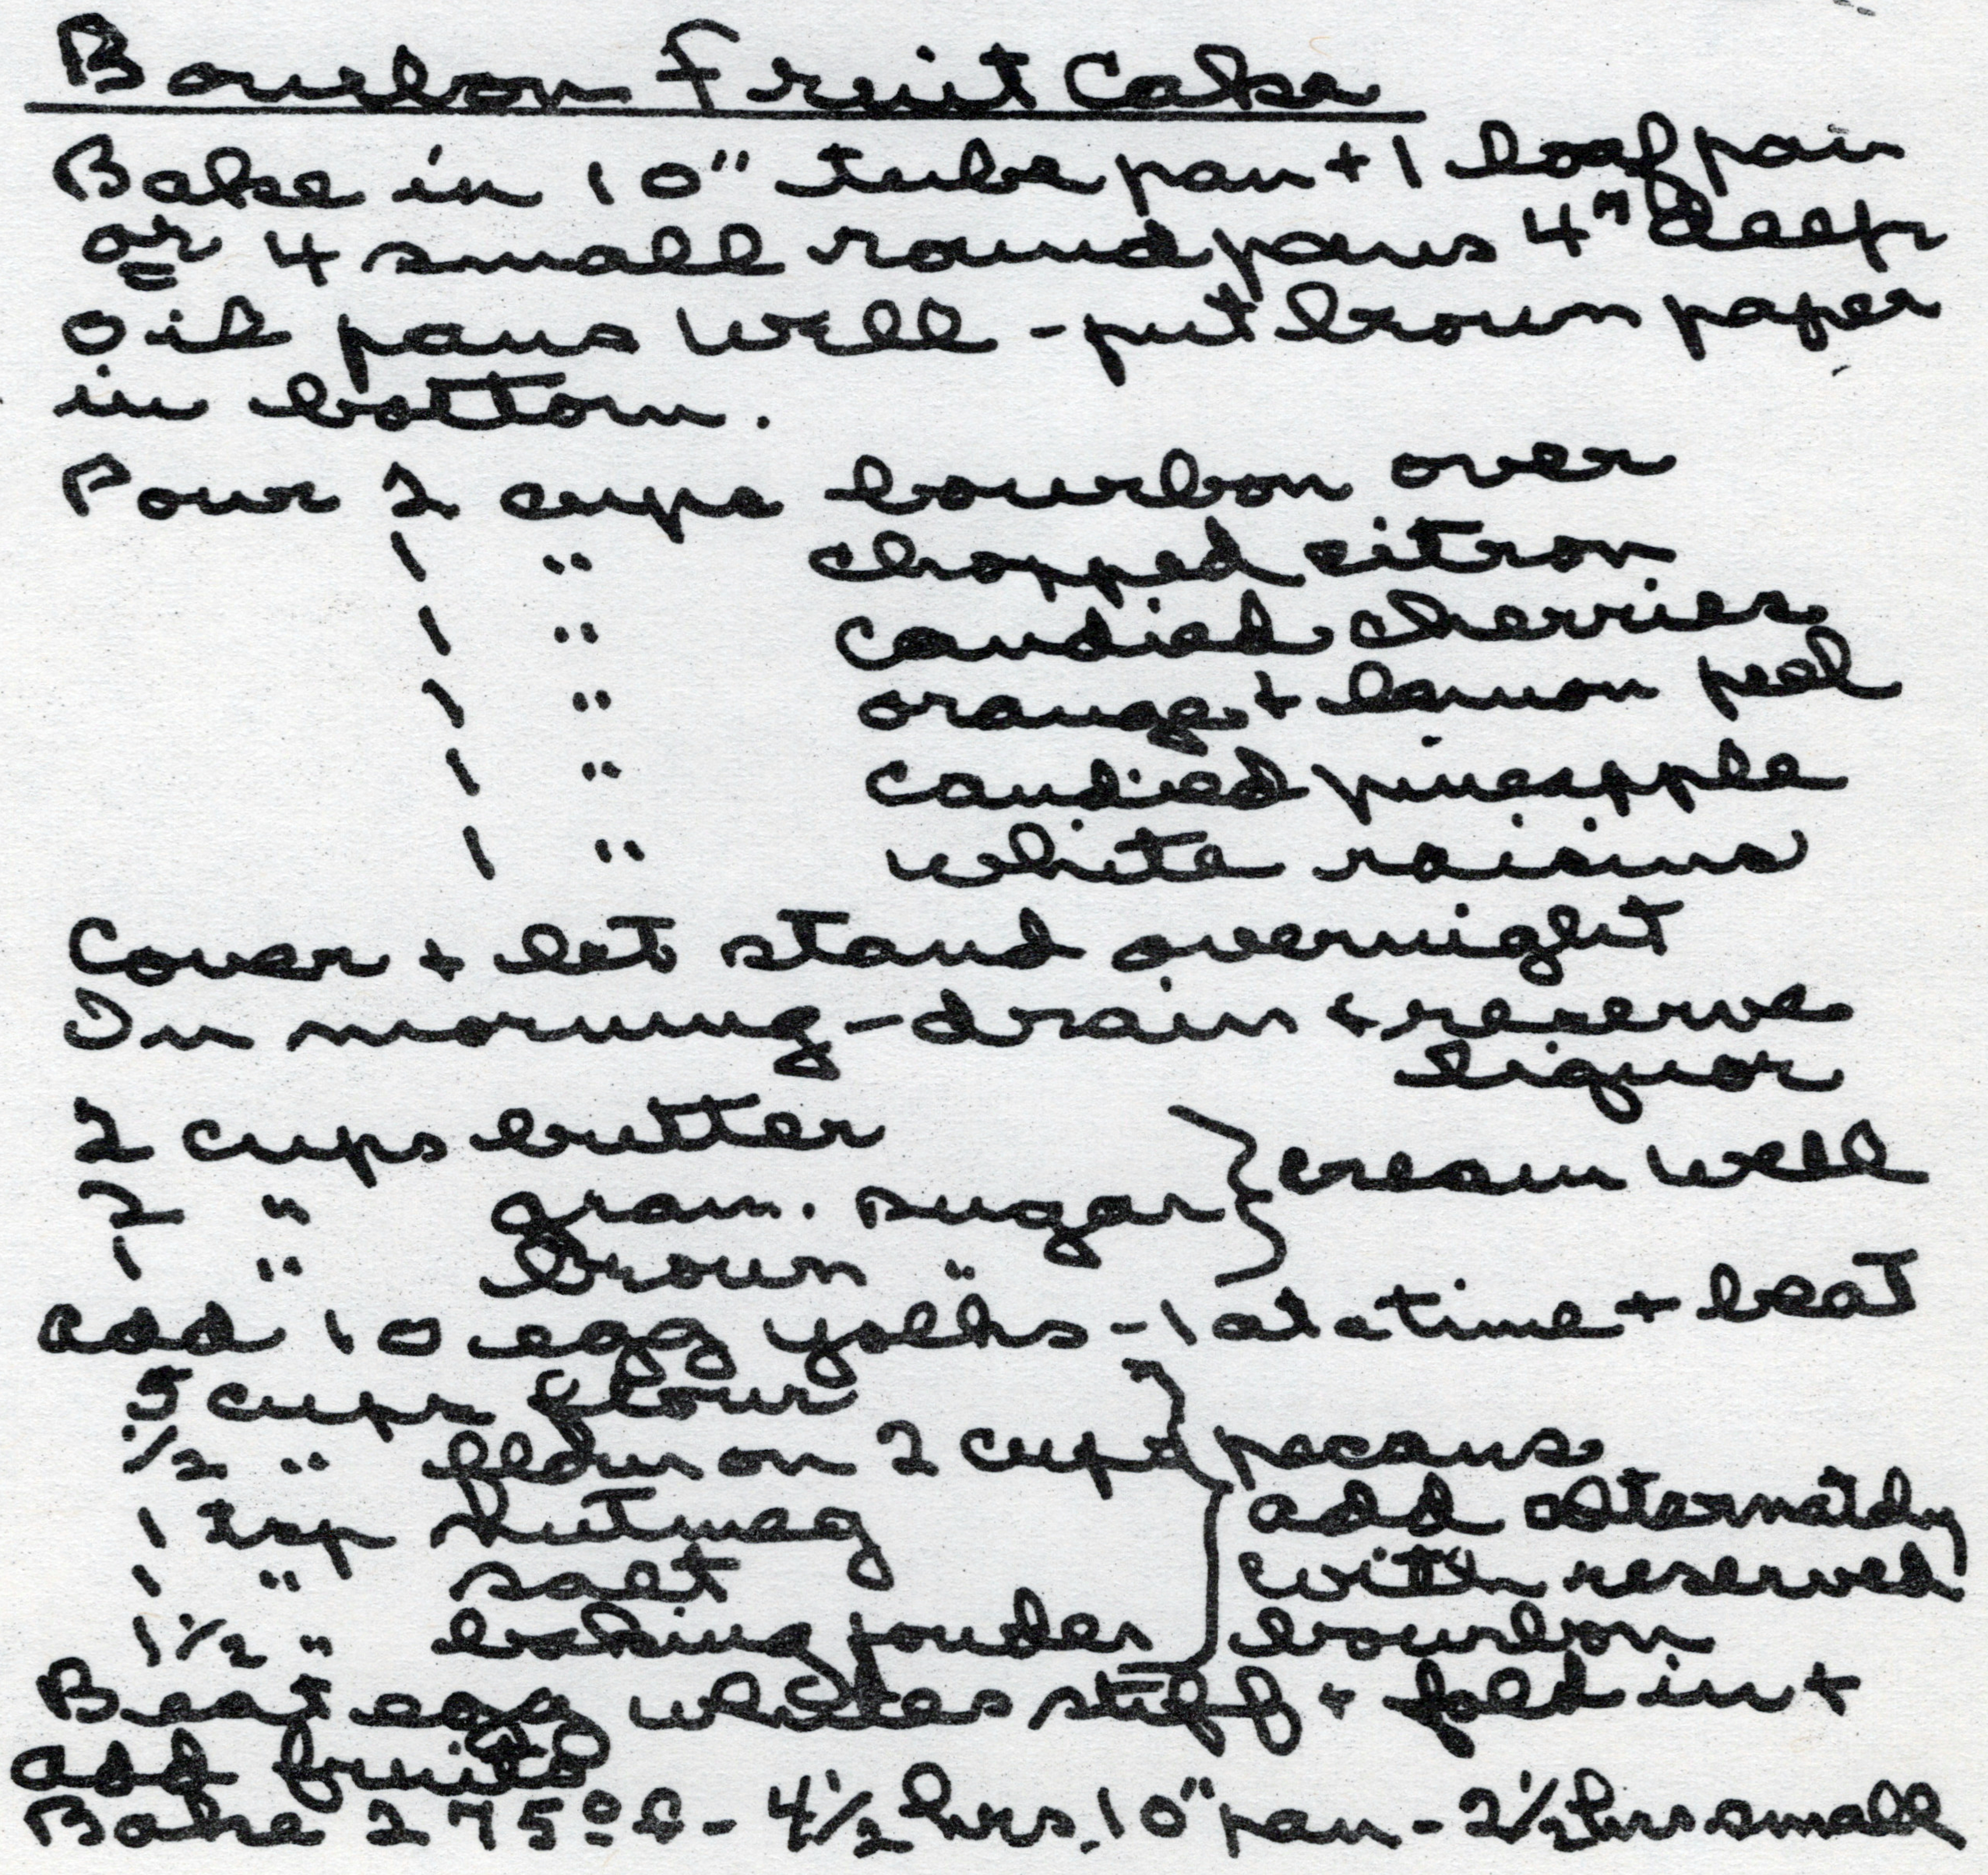 Bourbon Fruit Cake
Bake in 10" tube pan + 1 loaf pan
or 4 small round pans 4" deep
Oil pans well - put brown paper
in bottom.
Pour 2 cups bourbon over
1 " chopped citron
1 " candied cherries
1 " orange + lemon peel
1 " candied pineapple
1 " white raisins
Cover + let stand overnight
In morning - drain + reserve
liquor
2 cups butter } cream well
2 " gran. sugar
1 " brown "
add 10 egg yolks - 1 at a time + beat
5 cups flour
1/2 " 2 cups pecans
1 tsp nutmeg add alternately
1 " salt with reserved
1 1/2 " baking powder bourbon
Beat egg whites stiff + fold in +
add fruits
Bake 275° f - 4 1/2 hrs. 10" pan - 2 1/2 hrs small